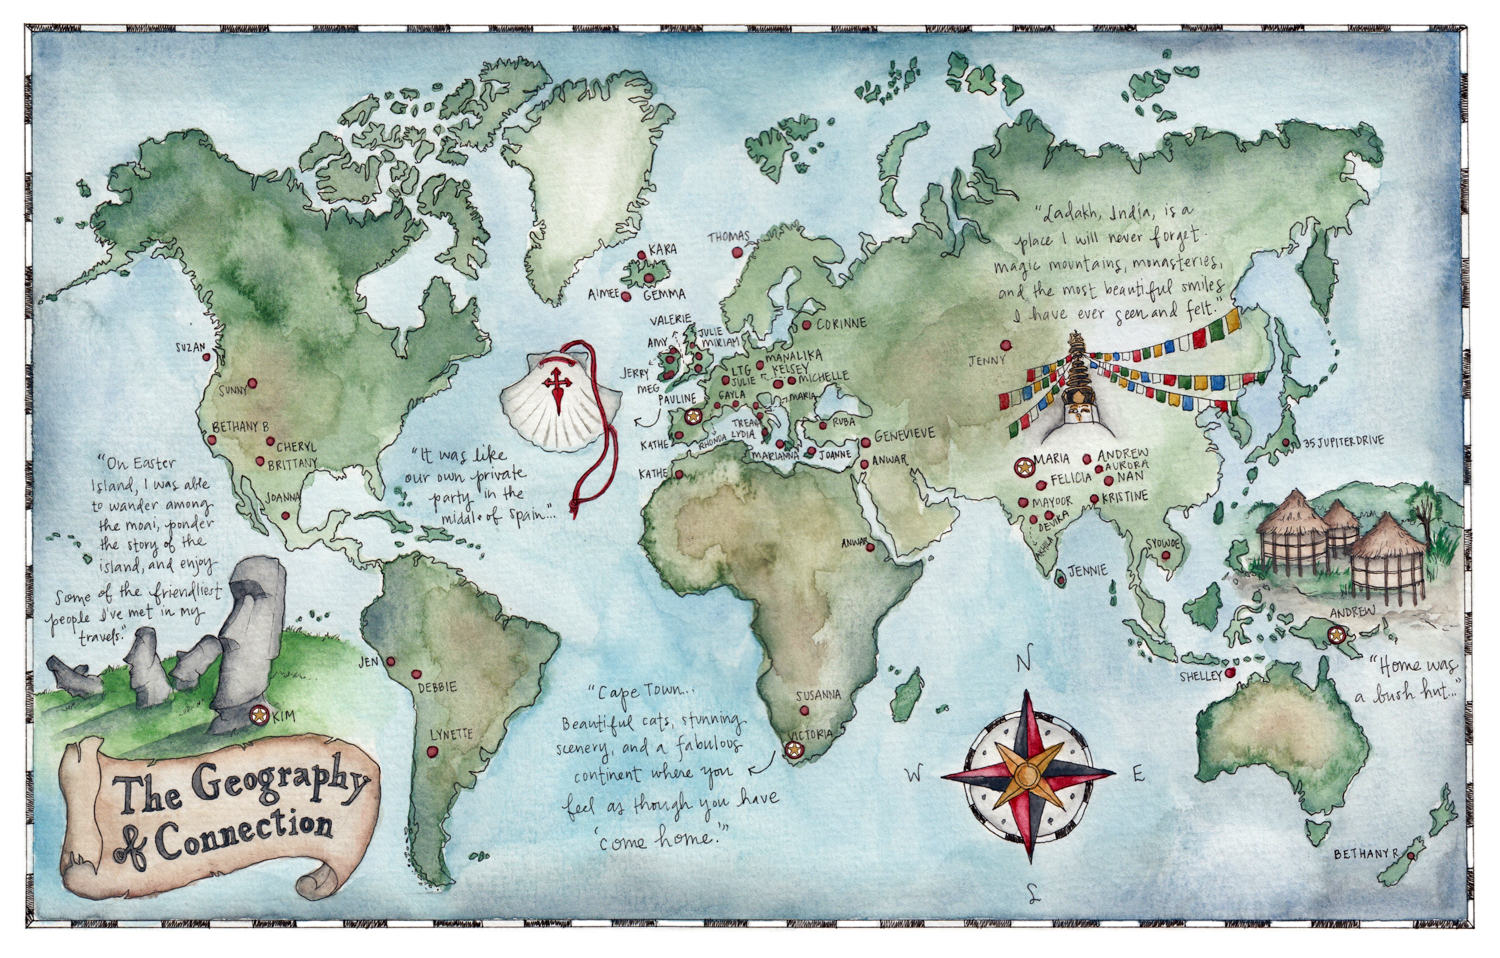 The Geography
of Connection
"On Easter
Island, I was able
to wander among
the moai, ponder
the story of the
island, and enjoy
some of the friendliest
people I've met in my
travels."
"It was like
our own private
party in the
middle of Spain..."
"Cape Town...
Beautiful cats, stunning
scenery, and a fabulous
continent where you
feel as though you have
'come home.'"
"Ladakh, India, is a
place I will never forget.
magic mountains, monasteries,
and the most beautiful smiles
I have ever seen and felt."
"Home was
a bush hut..."
SUZAN
SUNNY
BETHANY B
CHERYL
BRITTANY
JOANNA
KIM
JEN
DEBBIE
LYNETTE
KARA
AIMEE
GEMMA
THOMAS
VALERIE
AMY
JULIE
MIRIAM
JERRY
MEG
PAULINE
KATHE
KATHE
CORINNE
MANALIKA
LTG
KELSEY
JULIE
MICHELLE
GAYLA
MARIA
TREA
LYDIA
RHONDA
MARIANNA
JOANNE
RUBA
GENEVIEVE
ANWAR
ANWAR
SUSANNA
VICTORIA
JENNY
MARIA
ANDREW
AURORA
FELICIA
NAN
MAYOOR
KRISTINE
DEVIKA
AKHILA
JENNIE
SYOWOE
35JUPITERDRIVE
ANDREW
SHELLEY
BETHANY R
N
W
E
S